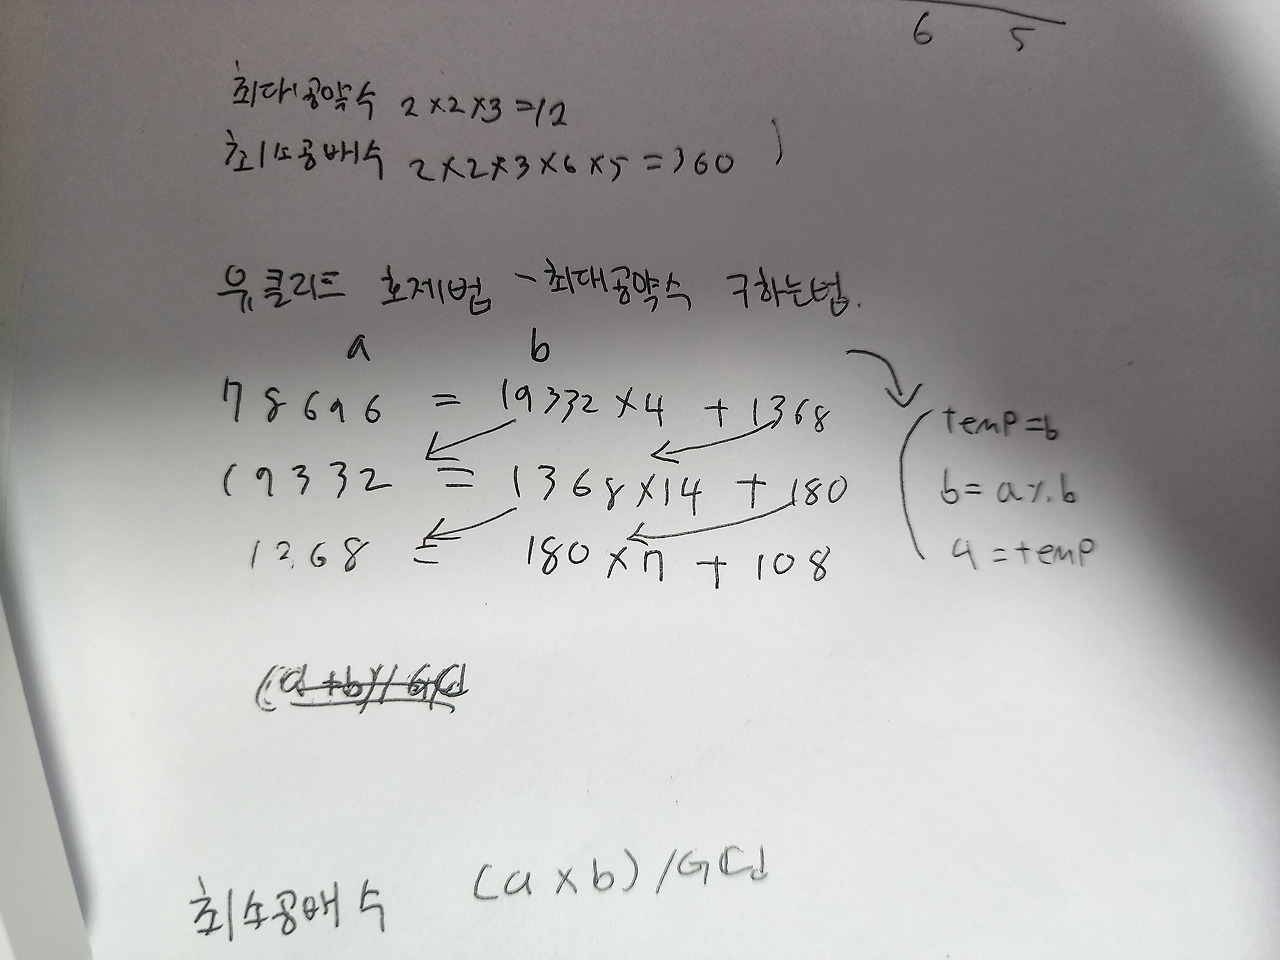 6 5
최대공약수 2×2×3=12
최소공배수 2×2×3×6×5=360
유클리드 호제법 - 최대공약수 구하는법.
a b
78696 = 19332×4 + 1368
19332 = 1368×14 + 180
1368 = 180×7 + 108
temp=b
b= a%b
a=temp
(a+b)/GCd
최소공배수 (a×b)/GCd